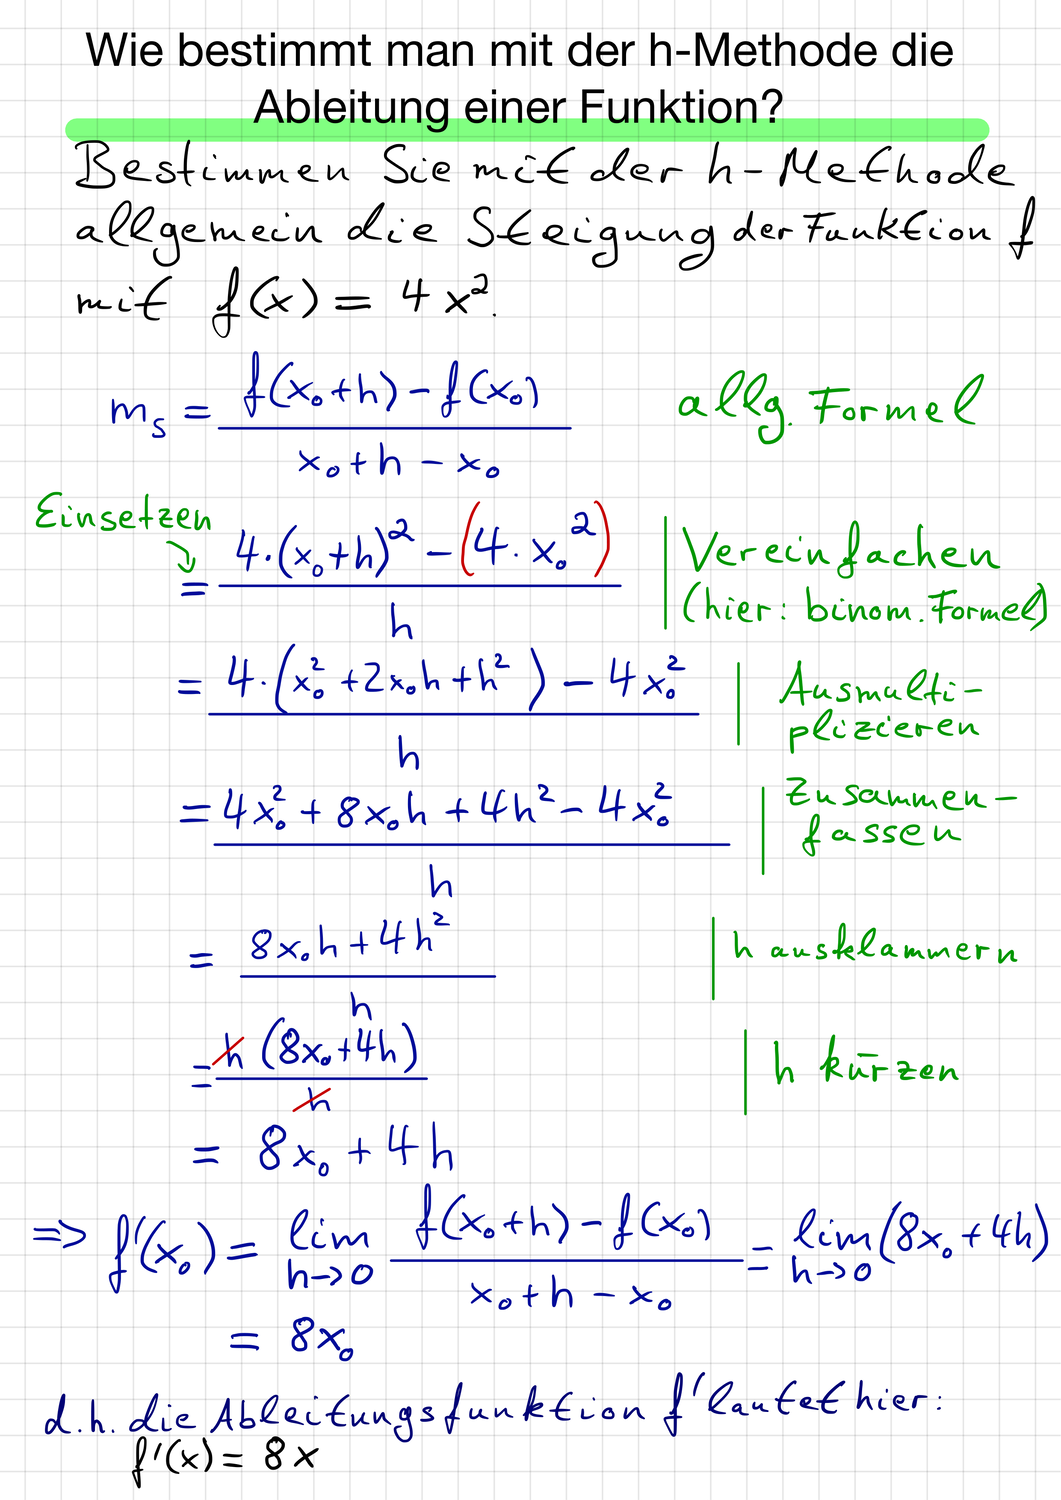 Wie bestimmt man mit der h-Methode die
Ableitung einer Funktion?
Bestimmen Sie mit der h-Methode
allgemein die Steigung der Funktion f
mit f(x) = 4x².
m_s = (f(x₀+h) − f(x₀)) / (x₀+h − x₀) allg. Formel
Einsetzen
= (4·(x₀+h)² − (4·x₀²)) / h | Vereinfachen
(hier: binom. Formel)
= (4·(x₀² + 2x₀h + h²) − 4x₀²) / h | Ausmulti-
plizieren
= (4x₀² + 8x₀h + 4h² − 4x₀²) / h | Zusammen-
fassen
= (8x₀h + 4h²) / h | h ausklammern
= h(8x₀+4h) / h | h kürzen
= 8x₀ + 4h
=> f'(x₀) = lim h→0 (f(x₀+h) − f(x₀)) / (x₀+h − x₀) = lim h→0 (8x₀+4h)
= 8x₀
d.h. die Ableitungsfunktion f' lautet hier:
f'(x) = 8x